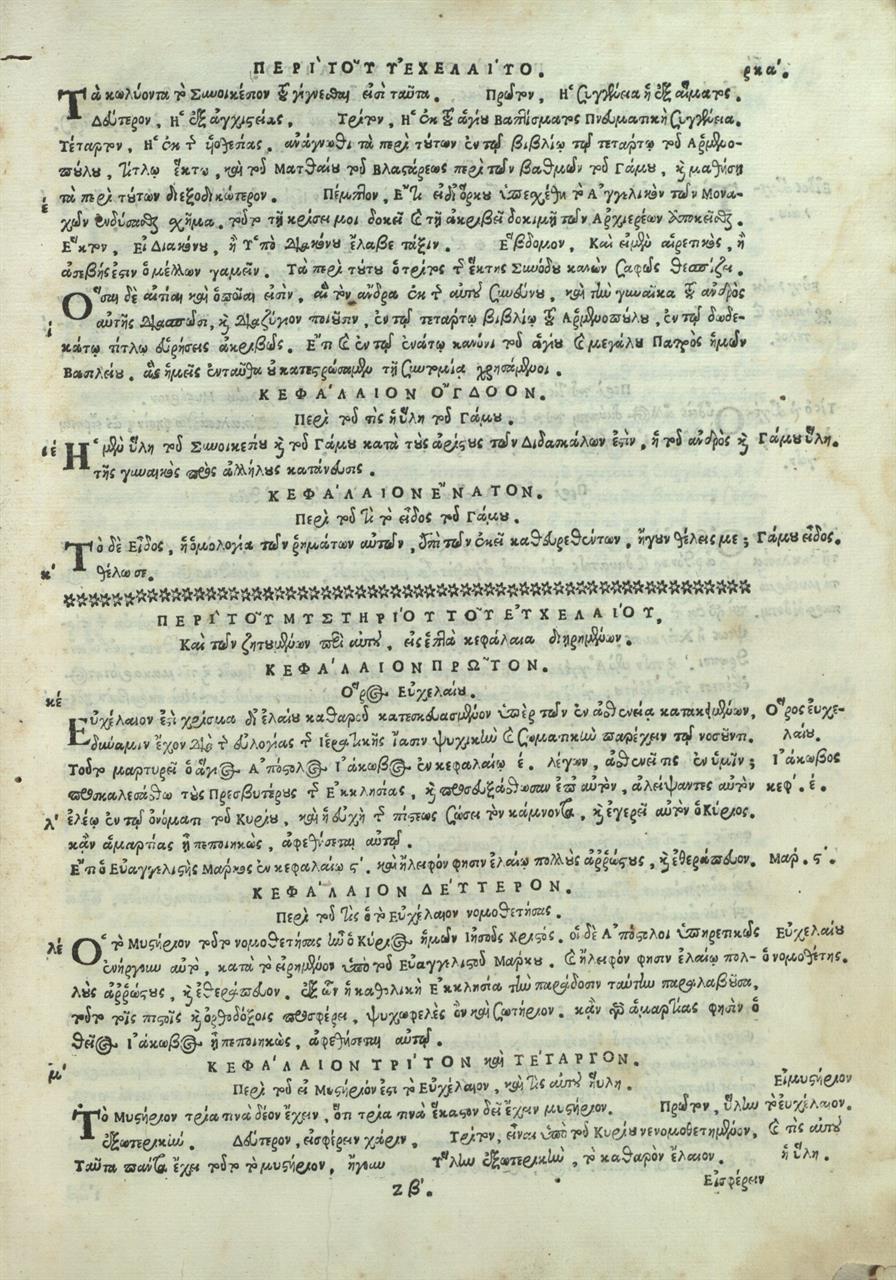 ΠΕΡΙ ΤΟΥ͂ ΕΥ̓ΧΕΛΑΊΟΥ. ρκα΄.
Τὰ κωλύοντα τὸ Συνοικέσιον τοῦ γίγνεσθαι εἰσὶ ταῦτα. Πρῶτον, Ἡ Συγγένεια ἡ ἐξ αἵματος.
Δεύτερον, Ἡ ἐξ ἀγχιστείας. Τρίτον, Ἡ ἐκ τοῦ ἁγίου Βαπτίσματος Πνευματικὴ Συγγένεια.
Τέταρτον, Ἡ ἐκ τῆς υἱοθεσίας. ἀνάγνωθι τὰ περὶ τούτων ἐν τῷ βιβλίῳ τῷ τετάρτῳ τοῦ Ἁρμενο-
πούλου, τίτλῳ ἕκτῳ, καὶ τοῦ Ματθαίου τοῦ Βλαστάρεως περὶ τῶν βαθμῶν τοῦ Γάμου, καὶ μαθήσῃ
έ τὰ περὶ τούτων διεξοδικώτερον. Πέμπτον, Εἴ τι εἰδι ὅρκου ὑπεσχέθη τὸ Ἀγγελικὸν τῶν Μονα-
χῶν ἐνδύσασθαι σχῆμα. τοῦτο τῇ κρίσει μοι δοκεῖ καὶ τῇ ἀκριβεῖ δοκιμῇ τῶν Ἀρχιερέων ὑποκεῖσθαι.
Ἕκτον, Εἰ Διακόνου, ἢ Ὑποδιακόνου ἔλαβε τάξιν. Ἕβδομον, Καὶ εἰ μὲν αἱρετικὸς, ἢ
ἀσεβής ἐστιν ὁ μέλλων γαμεῖν. Τὰ περὶ τούτου ὁ τρίτος τῆς ἕκτης Συνόδου κανὼν σαφῶς θεσπίζει.
Ὅσαι δὲ αἰτίαι καὶ ὁποῖαι εἰσὶν, αἳ τὸν ἄνδρα ἐκ τῆς αὐτοῦ συνεύνου, καὶ τὴν γυναῖκα τοῦ ἀνδρὸς
ί αὐτῆς διασπῶσι, καὶ διαζύγιον ποιοῦσιν, ἐν τῷ τετάρτῳ βιβλίῳ τοῦ Ἁρμενοπούλου, ἐν τῷ δωδε-
κάτῳ τίτλῳ εὑρήσεις ἀκριβῶς. Ἔτι καὶ ἐν τῷ ἐνάτῳ κανόνι τοῦ ἁγίου καὶ μεγάλου Πατρὸς ἡμῶν
Βασιλείου. ἃς ἡμεῖς ἐνταῦθα οὐ κατεστρώσαμεν τῇ συντομίᾳ χρησάμενοι.
ΚΕΦΑ΄ΛΑΙΟΝ Ὄ́ΓΔΟΟΝ.
Περὶ τοῦ τίς ἡ ὕλη τοῦ Γάμου.
ιέ Ἡ μὲν ὕλη τοῦ Συνοικεσίου καὶ τοῦ Γάμου κατὰ τοὺς ἀρίστους τῶν Διδασκάλων ἐστὶν, ἡ τοῦ ἀνδρὸς καὶ Γάμου ὕλη.
τῆς γυναικὸς πρὸς ἀλλήλους κατάνευσις.
ΚΕΦΑ΄ΛΑΙΟΝ Ἔ́ΝΑΤΟΝ.
Περὶ τοῦ τί τὸ εἶδος τοῦ Γάμου.
Τὸ δὲ Εἶδος, ἡ ὁμολογία τῶν ῥημάτων αὐτῶν, ἐπὶ τῶν ἐκεῖ καθευρεθέντων, ἤγουν θέλεις με; Γάμου εἶδος.
κ΄ θέλω σε.
ΠΕΡΙ ΤΟΥ͂ ΜΥΣΤΗΡΙ΄ΟΥ ΤΟΥ͂ ΕΥ̓ΧΕΛΑΙ΄ΟΥ,
Καὶ τῶν ζητουμένων περὶ αὐτοῦ, εἰς ἑπτὰ κεφάλαια διῃρημένων.
ΚΕΦΑ΄ΛΑΙΟΝ ΠΡΩ͂ΤΟΝ.
Ὅρος Εὐχελαίου.
κέ Εὐχέλαιον ἐστὶ χρίσμα δι' ἐλαίου καθαροῦ κατεσκευασμένον ὑπὲρ τῶν ἐν ἀσθενείᾳ κατακειμένων, Ὅρος εὐχε-
δύναμιν ἔχον διὰ τῆς εὐλογίας τῆς Ἱερατικῆς ἴασιν ψυχικὴν καὶ σωματικὴν παρέχειν τῷ νοσοῦντι. λαίου.
Τοῦτο μαρτυρεῖ ὁ ἅγιος Ἀπόστολος Ἰάκωβος ἐν κεφαλαίῳ έ. λέγων, ἀσθενεῖ τις ἐν ὑμῖν; Ἰάκωβος
προσκαλεσάσθω τοὺς Πρεσβυτέρους τῆς Ἐκκλησίας, καὶ προσευξάσθωσαν ἐπ' αὐτὸν, ἀλείψαντες αὐτὸν κεφ΄. έ.
λ΄ ἐλέῳ ἐν τῷ ὀνόματι τοῦ Κυρίου, καὶ ἡ εὐχὴ τῆς πίστεως σώσει τὸν κάμνοντα, καὶ ἐγερεῖ αὐτὸν ὁ Κύριος.
κἂν ἁμαρτίας ᾖ πεποιηκὼς, ἀφεθήσεται αὐτῷ.
Ἔτι ὁ Εὐαγγελιστὴς Μάρκος ἐν κεφαλαίῳ ς΄. καὶ ἤλειφόν φησιν ἐλαίῳ πολλοὺς ἀῤῥώστους, καὶ ἐθεράπευον. Μάρ. ς΄.
ΚΕΦΑ΄ΛΑΙΟΝ ΔΕΥ΄ΤΕΡΟΝ.
Περὶ τοῦ τίς ὁ τὸ Εὐχέλαιον νομοθετήσας.
λέ Ὁ τὸ Μυστήριον τοῦτο νομοθετήσας ἦν ὁ Κύριος ἡμῶν Ἰησοῦς Χριστός. οἱ δὲ Ἀπόστολοι ὑπηρετικῶς Εὐχελαίου
ἐνήργουν αὐτὸ, κατὰ τὸ εἰρημένον ὑπὸ τοῦ Εὐαγγελιστοῦ Μάρκου. καὶ ἤλειφόν φησιν ἐλαίῳ πολ- ὁ νομοθέτης.
λοὺς ἀῤῥώστους, καὶ ἐθεράπευον. ἐξ ὧν ἡ καθολικὴ Ἐκκλησία τὴν παράδοσιν ταύτην παραλαβοῦσα,
τοῦτο τοῖς πιστοῖς καὶ ὀρθοδόξοις προσφέρει, ψυχωφελὲς ὂν καὶ σωτήριον. κἂν γὰρ ἁμαρτίας φησὶν ὁ
θεῖος Ἰάκωβος ᾖ πεποιηκὼς, ἀφεθήσεται αὐτῷ.
μ΄ ΚΕΦΑ΄ΛΑΙΟΝ ΤΡΙ΄ΤΟΝ καὶ ΤΕ΄ΤΑΡΤΟΝ.
Περὶ τοῦ εἰ Μυστήριόν ἐστι τὸ Εὐχέλαιον, καὶ τίς αὐτοῦ ἡ ὕλη. Εἰ μυστήριον
Τὸ Μυστήριον τρία τινὰ δέον ἔχειν, ὅτι τρία τινὰ ἕκαστον δεῖ ἔχειν μυστήριον. Πρῶτον, ὕλην τὸ εὐχέλαιον.
ἐξωτερικήν. Δεύτερον, εἰσφέρειν χάριν. Τρίτον, εἶναι ὑπὸ τοῦ Κυρίου νενομοθετημένον, καὶ τίς αὐτοῦ
Ταῦτα πάντα ἔχει τοῦτο τὸ μυστήριον, ἤγουν Ὕλην ἐξωτερικὴν, τὸ καθαρὸν ἔλαιον. ἡ ὕλη.
Ζ β΄. Εἰσφέρειν